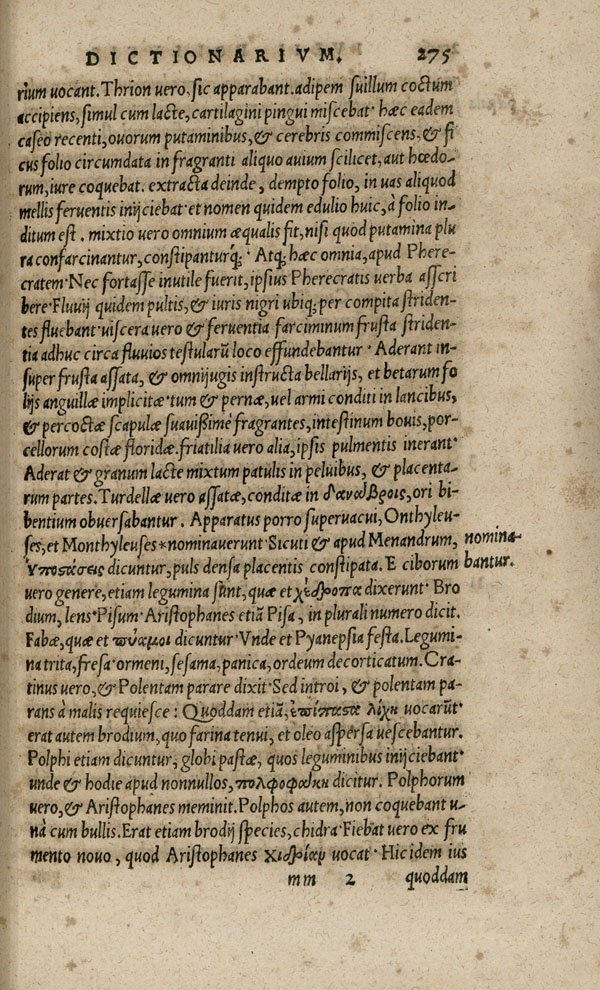 DICTIONARIVM. 275
rium uocant. Thrion uero, sic apparabant. adipem suillum coctum
accipiens, simul cum lacte, cartilagini pingui miscebat· hæc eadem
caseo recenti, ouorum putaminibus, & cerebris commiscens, & fi
cus folio circumdata in fragranti aliquo auium scilicet, aut hœdo-
rum, iure coquebat. extracta deinde, dempto folio, in uas aliquod
mellis feruentis inijciebat· et nomen quidem edulio huic, à folio in-
ditum est. mixtio uero omnium æqualis fit, nisi quod putamina plu
ra confarcinantur, constipanturq́;· Atq; hæc omnia, apud Phere-
cratem· Nec fortasse inutile fuerit, ipsius Pherecratis uerba asscri
bere· Fluuij quidem pultis, & iuris nigri ubiq; per compita striden-
tes fluebant· uiscera uero & feruentia farciminum frusta striden-
tia adhuc circa fluuios testularũ loco effundebantur· Aderant in-
super frusta assata, & omnijugis instructa bellarijs, et betarum fo
lijs anguillæ implicitæ· tum & pernæ, uel armi conditi in lancibus,
& percoctæ scapulæ suauißimè fragrantes, intestinum bouis, por-
cellorum costæ floridæ. friatilia uero alia, ipsis pulmentis inerant·
Aderat & granum lacte mixtum patulis in peluibus, & placenta-
rum partes. Turdellæ uero assatæ, conditæ in ori bi-
bentium obuersabantur. Apparatus porro superuacui, Onthyleu-
ses, et Monthyleuses * nominauerunt· Sicuti & apud Menandrum, nomina-
Υποστάσεις dicuntur, puls densa placentis constipata. E ciborum bantur.
uero genere, etiam legumina sunt, quæ et χέδροπα dixerunt· Bro
dium, lens· Pisum· Aristophanes etiã Pisa, in plurali numero dicit.
Fabæ, quæ et πύαμοι dicuntur· Vnde et Pyanepsia festa. Legumi-
na trita, fresa· ormeni, sesama, panica, ordeum decorticatum. Cra-
tinus uero, & Polentam parare dixit· Sed introi, & polentam pa-
rans à malis requiesce: Quoddam etiã, uocarũt·
erat autem brodium, quo farina tenui, et oleo aspersa uescebantur.
Polphi etiam dicuntur, globi pastæ, quos leguminibus inijciebant·
unde & hodie apud nonnullos, πολφοφάκη dicitur. Polphorum
uero, & Aristophanes meminit. Polphos autem, non coquebant u-
nà cum bullis. Erat etiam brodij species, chidra· Fiebat uero ex fru
mento nouo, quod Aristophanes χιδρίαν uocat· Hic idem ius
mm 2 quoddam